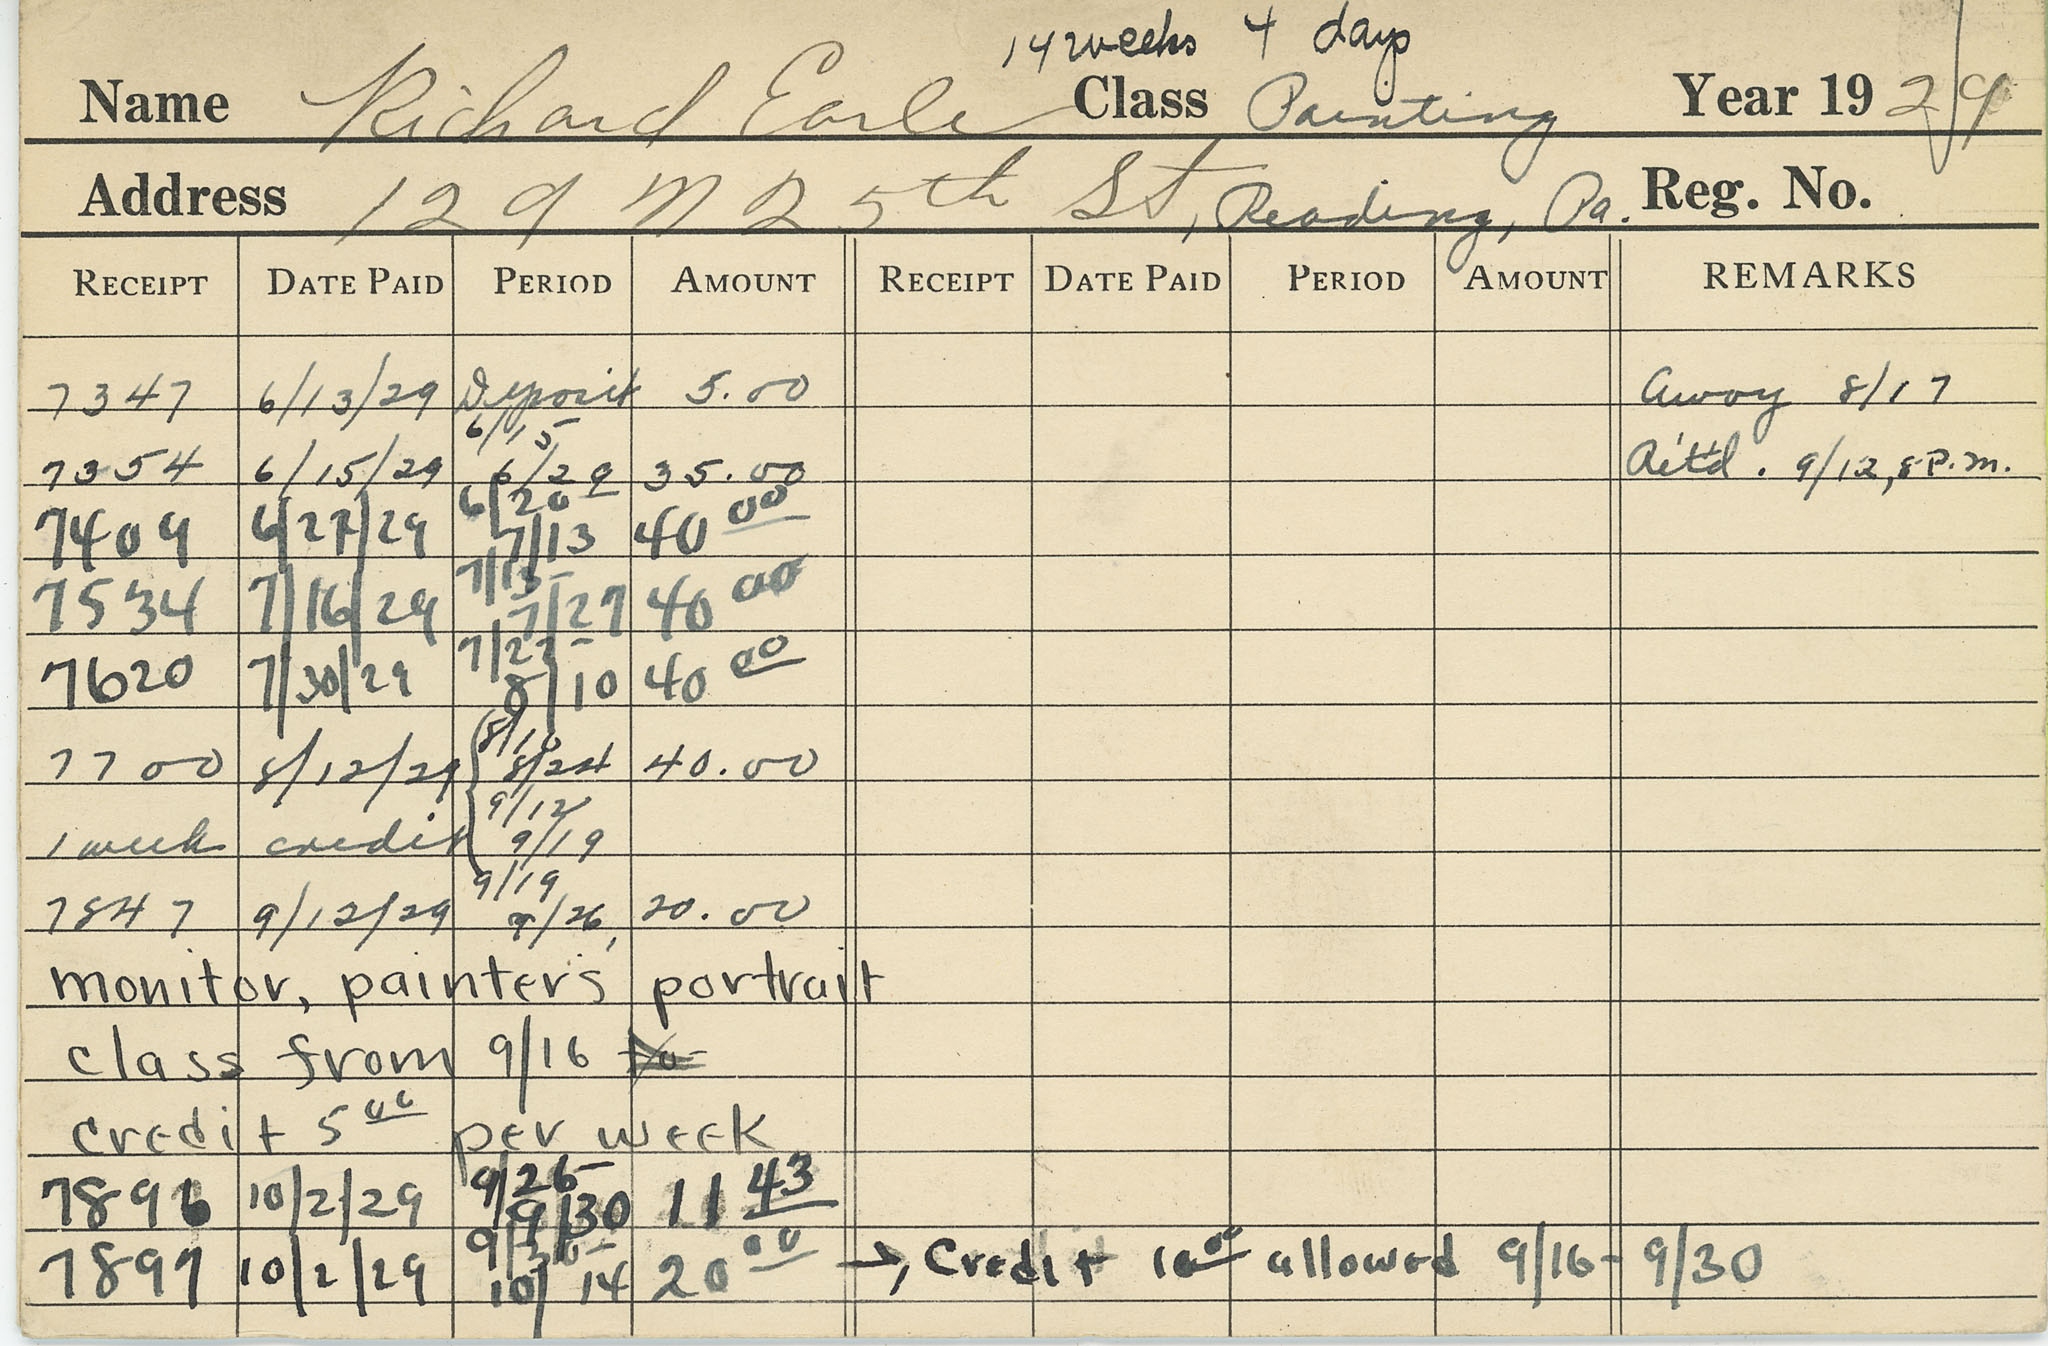 14 weeks 4 days
Name Richard Earle Class Painting Year 1929
Address 129 N 25th St, Reading, Pa. Reg. No.
RECEIPT DATE PAID PERIOD AMOUNT RECEIPT DATE PAID PERIOD AMOUNT REMARKS
7347 6/13/29 Deposit 5.00 Away 8/17
6/15
7354 6/15/29 6/29 35.00 Ret'd. 9/12, 8 P.M.
6/29
7409 6/27/29 7/13 40 00
7/13-
7534 7/16/29 7/27 40 00
7/27-
7620 7/30/29 8/10 40 00
8/10
7700 8/12/29 8/24 40.00
9/12
1 week credit 9/19
9/19
7847 9/12/29 9/26, 20.00
monitor, painters portrait
class from 9/16
credit 5 00 per week
9/26-
7896 10/2/29 9/30 11 43
9/30-
7897 10/2/29 10/14 20 00 →, Credit 10 00 allowed 9/16-9/30